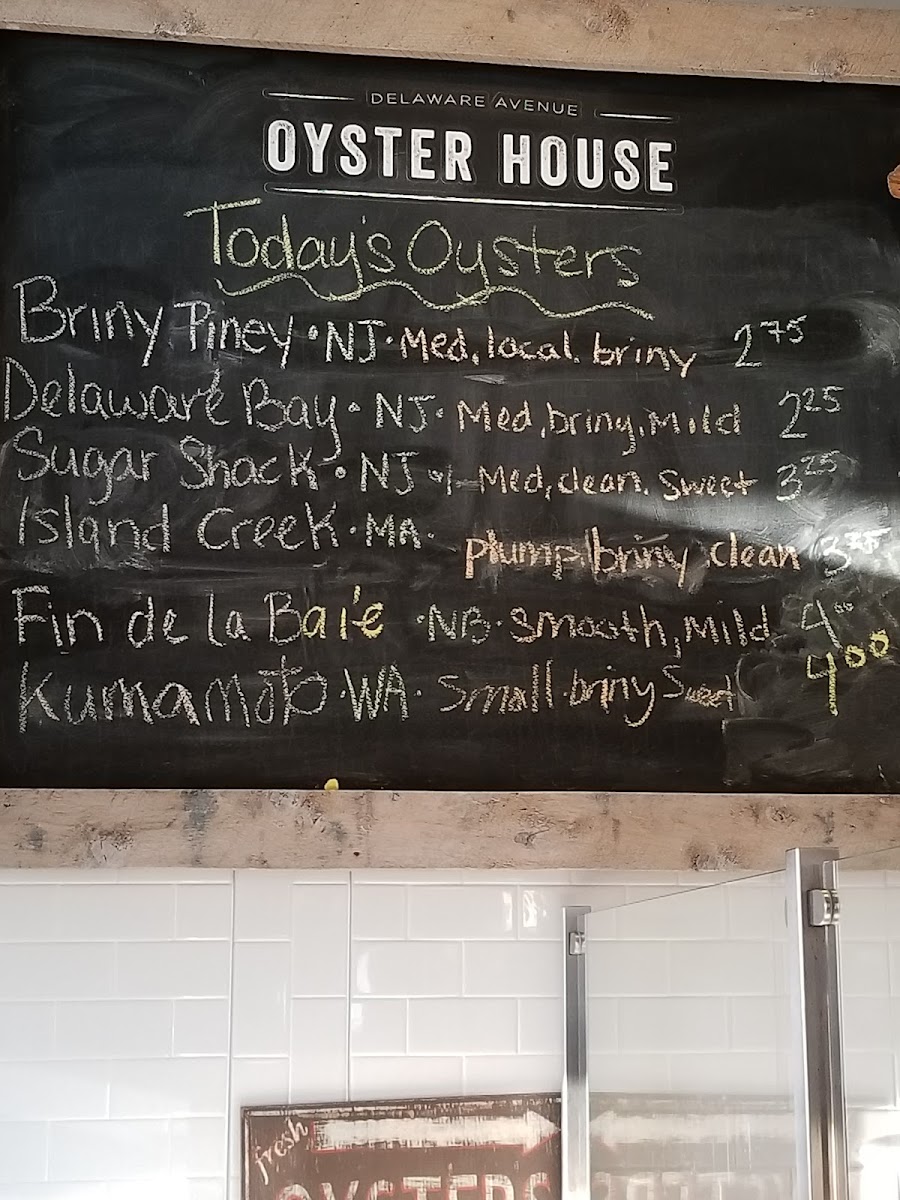 DELAWARE AVENUE
OYSTER HOUSE
Today's Oysters
Briny Piney • NJ • Med, local, briny 2 75
Delaware Bay • NJ • Med, briny, Mild 2 25
Sugar Shack • NJ • Med, clean, Sweet 3 25
Island Creek • MA • plump, briny, clean
Fin de la Baie • NB • Smooth, Mild 4 00
Kumamoto • WA • Small briny Sweet 4 00
fresh
OYSTERS